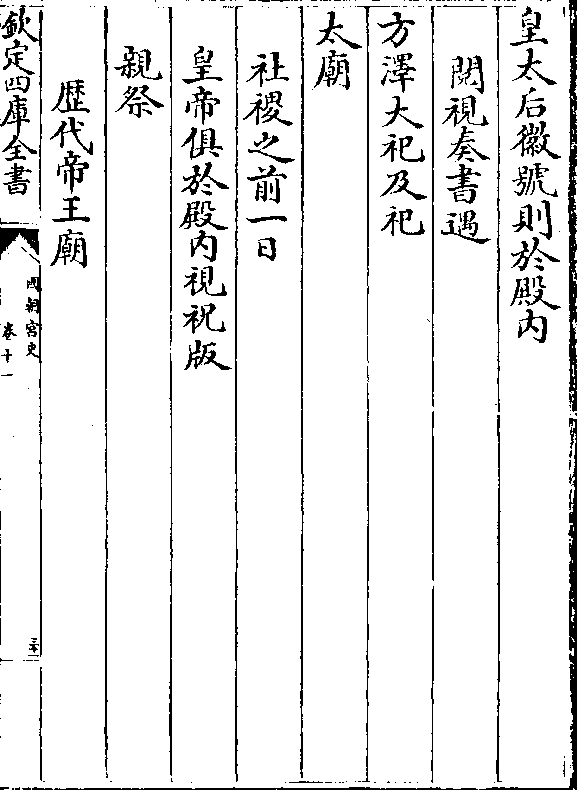 皇太后徽號則於殿内
閱視奏書遇
方澤大祀及祀
太廟
社稷之前一日
皇帝俱於殿内視祝版
親祭
歴代帝王廟
欽定四庫全書
國朝宫史
卷十一